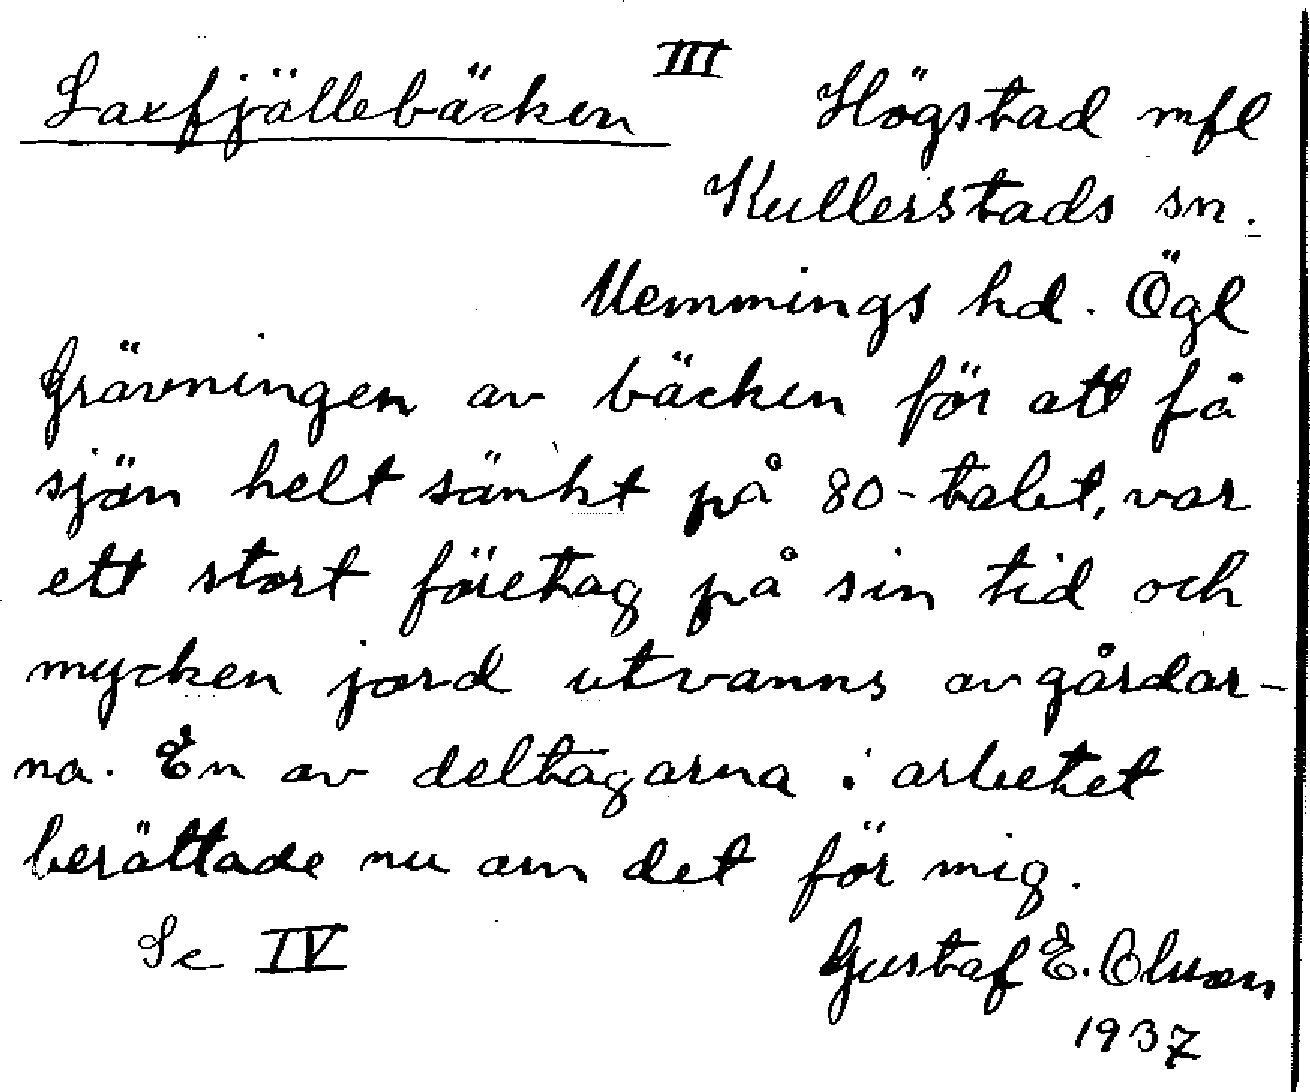 III
Laxfjällebäcken Högstad mfl
Kullerstads sn.
Memmings hd. Ögl
Grävningen av bäcken för att få
sjön helt sänkt på 80-talet, var
ett stort företag på sin tid och
mycken jord utvanns av gårdar-
na. En av deltagarna i arbetet
berättade nu om det för mig.
Se IV Gustaf E. Olsson
1937